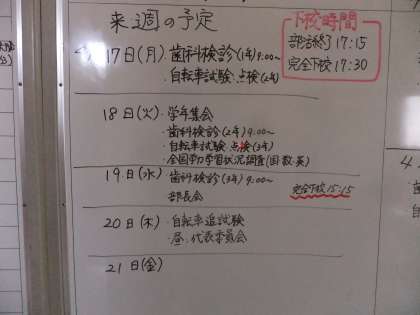 来週の予定
下校時間
部活終了 17:15
完全下校 17:30
17日(月)・歯科検診(1年) 9:00〜
・自転車試験、点検(2年)
18日(火)・学年集会
・歯科検診(2年) 9:00〜
・自転車試験、点検(3年)
・全国学力学習状況調査(国・数・英)
19日(水)・歯科検診(3年) 9:00〜
部長会
完全下校 15:15
20日(木)・自転車追試験
・昼、代表委員会
21日(金)